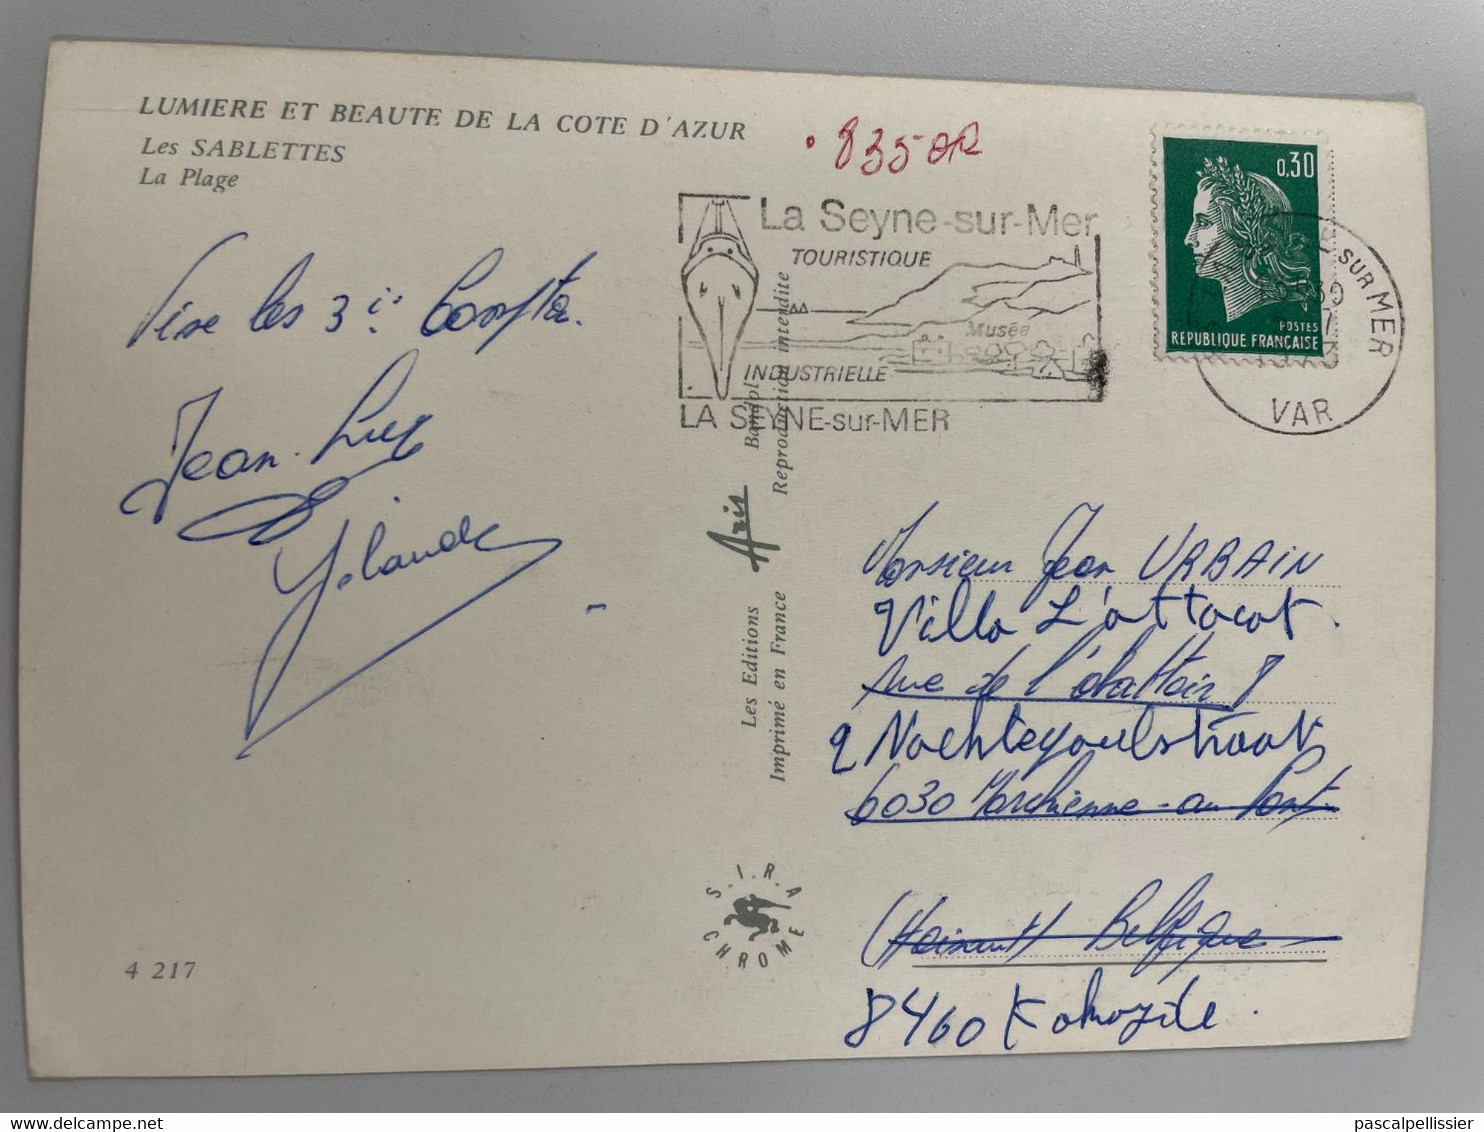 LUMIERE ET BEAUTE DE LA COTE D'AZUR
Les SABLETTES
La Plage
. 835
Vive les 3
Jean-Luc
Yolande
4 217
La Seyne-sur-Mer
TOURISTIQUE
Musée
INDUSTRIELLE
LA SEYNE-sur-MER
0,30
POSTES
REPUBLIQUE FRANÇAISE
sur MER
VAR
Les Editions Aris Bandol
Imprimé en France Reproduction interdite
S.I.R.A
CHROME
Monsieur Jean URBAIN
Villa L'attacat.
rue de l'abattoir 8
2
6030 Marchienne-au Pont.
(Hainaut) Belgique
8460 Koksijde.
delcampe.net
pascalpellissier